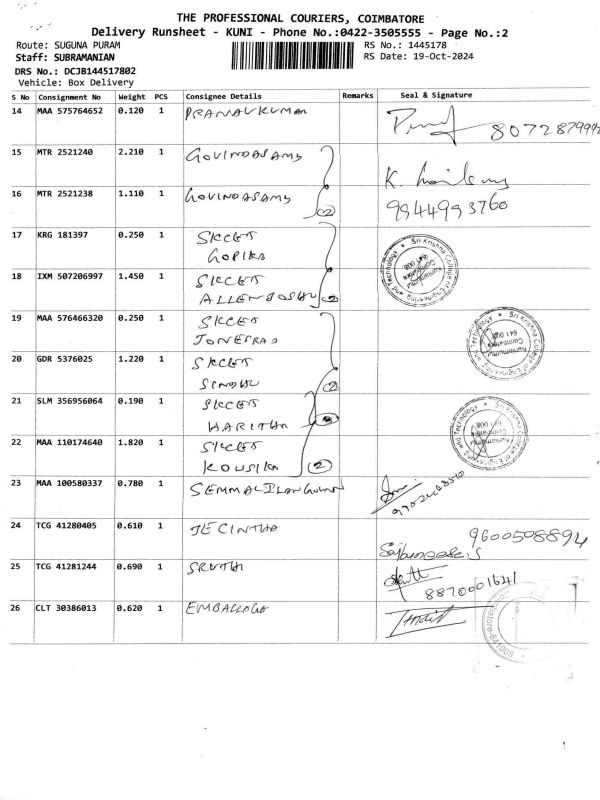 THE PROFESSIONAL COURIERS, COIMBATORE
Delivery Runsheet - KUNI - Phone No.:0422-3505555 - Page No.:2
Route: SUGUNA PURAM
RS No.: 1445178
Staff: SUBRAMANIAN
RS Date: 19-Oct-2024
DRS No.: DCJB144517802
Vehicle: Box Delivery
S No Consignment No Weight PCS Consignee Details Remarks Seal & Signature
14 MAA 575764652 0.120 1 PRANAVKUMAR
15 MTR 2521240 2.210 1 GOVINDASAMY
16 MTR 2521238 1.110 1 GOVINDASAMY (2) 9944993760
17 KRG 181397 0.250 1 SKCET
GOPIKA
18 IXM 507206997 1.450 1 SKCET
ALLEN JOSHU (2)
Sri Krishna College of Engineering and Technology
Kuniamuthur
Coimbatore
641 008
19 MAA 576466320 0.250 1 SKCET
20 GDR 5376025 1.220 1 SKCET
SINDHU (2)
Sri Krishna College of Engineering and Technology
Kuniamuthur
Coimbatore
641 008
21 SLM 356956064 0.190 1 SKCET
HARITHA
22 MAA 110174640 1.820 1 SKCET
KOUSIKA (2)
Sri Krishna College of Engineering and Technology
Kuniamuthur
Coimbatore
641 008
23 MAA 100580337 0.780 1
24 TCG 41280405 0.610 1 JECINTHA 9600508894
25 TCG 41281244 0.690 1 SRUTHI 8870001641
26 CLT 30386013 0.620 1
Coimbatore-641008